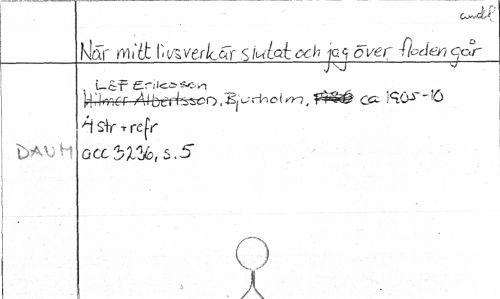 andl.
När mitt livsverk är slutat och jag över floden går
Lef Eriksson
Hilmer Albertsson, Bjurholm, ca 1905-10
4 str + refr
DAUM acc 3236, s. 5